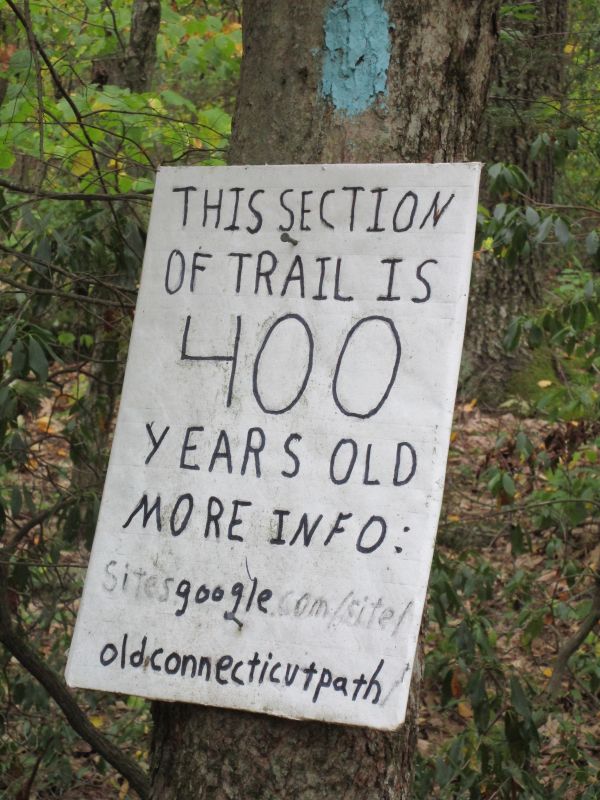 THIS SECTION
OF TRAIL IS
400
YEARS OLD
MORE INFO:
Sites google.com/site/
oldconnecticutpath/